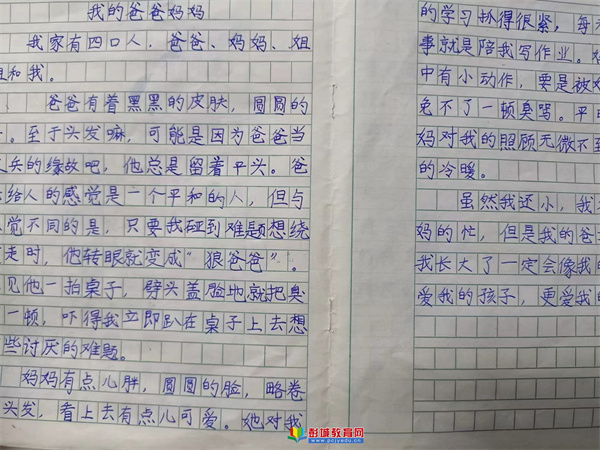 我的爸爸妈妈
我家有四口人，爸爸、妈妈、姐
和我。
爸爸有着黑黑的皮肤，圆圆的
。至于头发嘛，可能是因为爸爸当
兵的缘故吧，他总是留着平头。爸
给人的感觉是一个平和的人，但与
觉不同的是，只要我碰到难题想绕
走时，他转眼就变成“狼爸爸”。
见他一拍桌子，劈头盖脸地就把臭
一顿，吓得我立即趴在桌子上去想
些讨厌的难题。
妈妈有点儿胖，圆圆的脸，略卷
头发，看上去有点儿可爱。她对我
的学习抓得很紧，每
事就是陪我写作业。
中有小动作，要是被
免不了一顿臭骂。平
妈对我的照顾无微不
的冷暖。
虽然我还小，我
妈的忙，但是我的爸
我长大了一定会像我
爱我的孩子，更爱我
彭城教育网
www.pcjyedu.cn